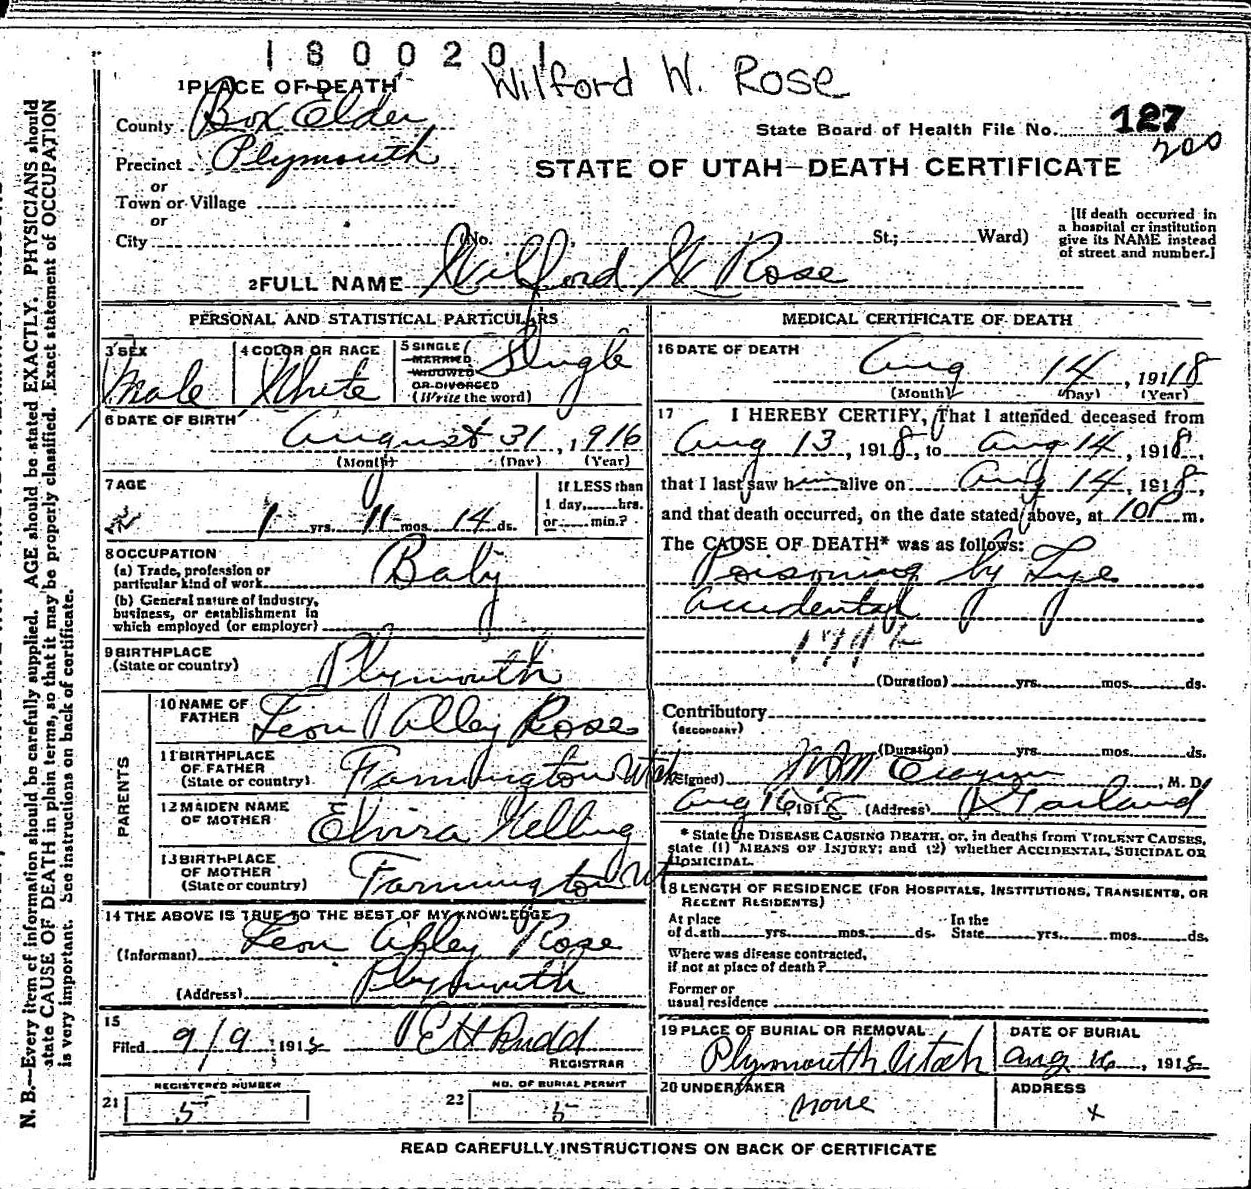 1800201
Wilford W. Rose
1 PLACE OF DEATH
County Box Elder
State Board of Health File No. 127
200
Precinct Plymouth
STATE OF UTAH—DEATH CERTIFICATE
or
Town or Village
or
City (No. St.; Ward)
[If death occurred in
a hospital or institution
give its NAME instead
of street and number.]
2 FULL NAME Wilford W Rose
PERSONAL AND STATISTICAL PARTICULARS
3 SEX
Male
4 COLOR OR RACE
White
5 SINGLE
MARRIED
WIDOWED
OR DIVORCED
(Write the word)
Single
6 DATE OF BIRTH
August 31, 1916
(Month) (Day) (Year)
7 AGE
1 yrs. 11 mos. 14 ds.
If LESS than
1 day, hrs.
or min.?
8 OCCUPATION
(a) Trade, profession or
particular kind of work
Baby
(b) General nature of industry,
business, or establishment in
which employed (or employer)
9 BIRTHPLACE
(State or country)
Plymouth
PARENTS
10 NAME OF
FATHER
Leon Alley Rose
11 BIRTHPLACE
OF FATHER
(State or country)
Farmington Utah
12 MAIDEN NAME
OF MOTHER
Elvira
13 BIRTHPLACE
OF MOTHER
(State or country)
Farmington Ut
14 THE ABOVE IS TRUE TO THE BEST OF MY KNOWLEDGE
(Informant) Leon Rose
(Address) Plymouth
15
Filed 9/9 1918 E H Rudd
REGISTRAR
REGISTERED NUMBER
21 5
NO. OF BURIAL PERMIT
22 5
MEDICAL CERTIFICATE OF DEATH
16 DATE OF DEATH
Aug 14, 1918
(Month) (Day) (Year)
17 I HEREBY CERTIFY, That I attended deceased from
Aug 13, 1918, to Aug 14, 1918,
that I last saw him alive on Aug 14, 1918,
and that death occurred, on the date stated above, at 10P m.
The CAUSE OF DEATH* was as follows:
Poisoning by Lye
accidental
(Duration) yrs. mos. ds.
Contributory
(SECONDARY)
(Duration) yrs. mos. ds.
(Signed) , M. D.
Aug 16, 1918 (Address) Garland
* State the DISEASE CAUSING DEATH, or, in deaths from VIOLENT CAUSES,
state (1) MEANS OF INJURY; and (2) whether ACCIDENTAL, SUICIDAL OR
HOMICIDAL.
18 LENGTH OF RESIDENCE (FOR HOSPITALS, INSTITUTIONS, TRANSIENTS, OR
RECENT RESIDENTS)
At place
of death yrs. mos. ds.
In the
State yrs. mos. ds.
Where was disease contracted,
if not at place of death?
Former or
usual residence
19 PLACE OF BURIAL OR REMOVAL
Plymouth Utah
DATE OF BURIAL
Aug 16, 1918
20 UNDERTAKER
none
ADDRESS
x
READ CAREFULLY INSTRUCTIONS ON BACK OF CERTIFICATE
N. B.—Every item of information should be carefully supplied. AGE should be stated EXACTLY. PHYSICIANS should
state CAUSE OF DEATH in plain terms, so that it may be properly classified. Exact statement of OCCUPATION
is very important. See instructions on back of certificate.